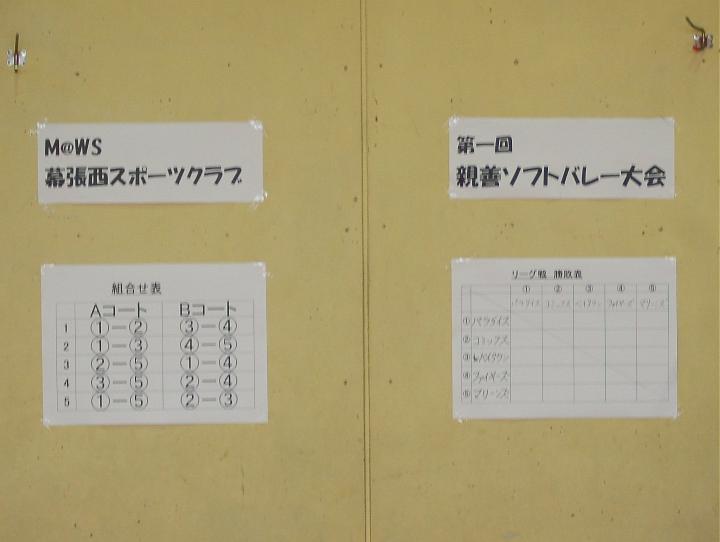 M@WS
幕張西スポーツクラブ
第一回
親善ソフトバレー大会
組合せ表
Aコート Bコート
1 ①－② ③－④
2 ①－③ ④－⑤
3 ②－⑤ ①－④
4 ③－⑤ ②－④
5 ①－⑤ ②－③
リーグ戦 勝敗表
① ② ③ ④ ⑤
パラダイス コミックス ファイヤーズ マリーンズ
①パラダイス
②コミックス
③
④ファイヤーズ
⑤マリーンズ